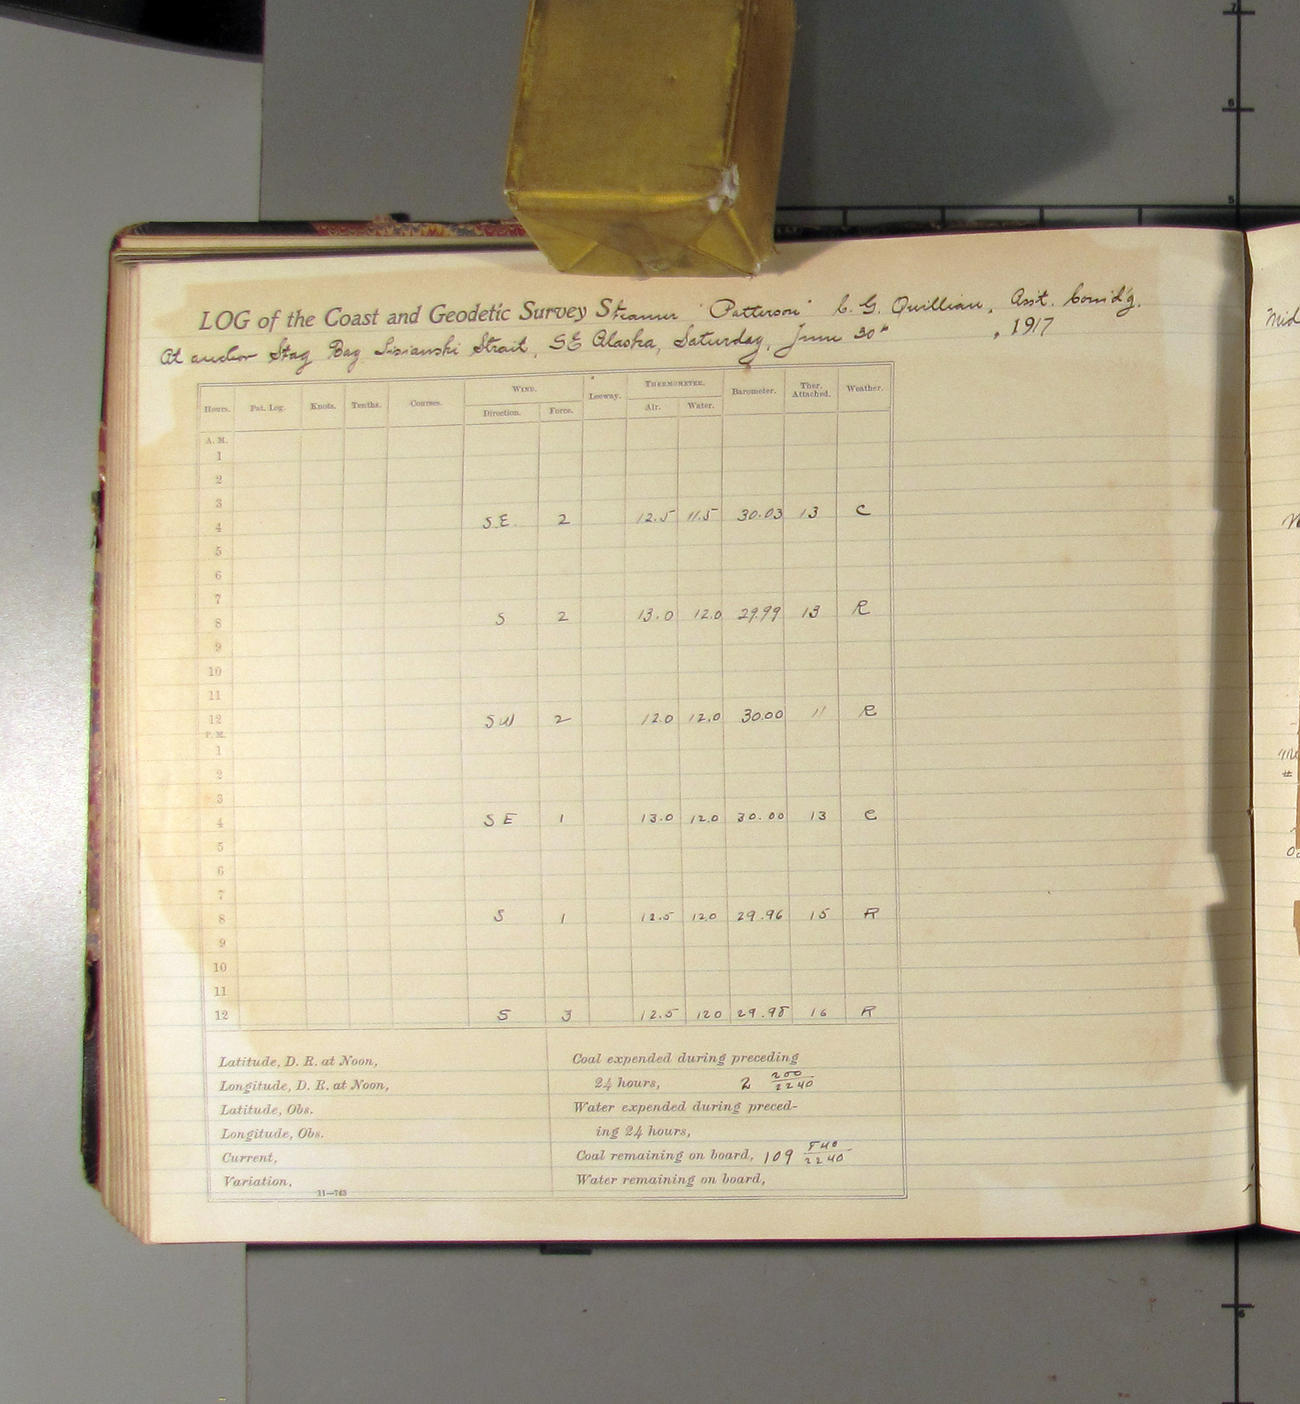 LOG of the Coast and Geodetic Survey Steamer "Patterson" C. G. Quillian, Asst. Comd'g.
At anchor Stag Bay Lisianski Strait, SE Alaska, Saturday, June 30th, 1917
Hours. Pat. Log. Knots. Tenths. Courses. WIND. Direction. Force. Leeway. THERMOMETER. Air. Water. Barometer. Ther. Attached. Weather.
A. M.
1
2
3
4 SE 2 12.5 11.5 30.03 13 C
5
6
7
8 S 2 13.0 12.0 29.99 13 R
9
10
11
12 SW 2 12.0 12.0 30.00 11 R
P. M.
1
2
3
4 SE 1 13.0 12.0 30.00 13 C
5
6
7
8 S 1 12.5 12.0 29.96 15 R
9
10
11
12 S 3 12.5 120 29.98 16 R
Latitude, D. R. at Noon,
Longitude, D. R. at Noon,
Latitude, Obs.
Longitude, Obs.
Current,
Variation,
11—763
Coal expended during preceding
24 hours, 2 200/2240
Water expended during preced-
ing 24 hours,
Coal remaining on board, 109 840/2240
Water remaining on board,
Mid